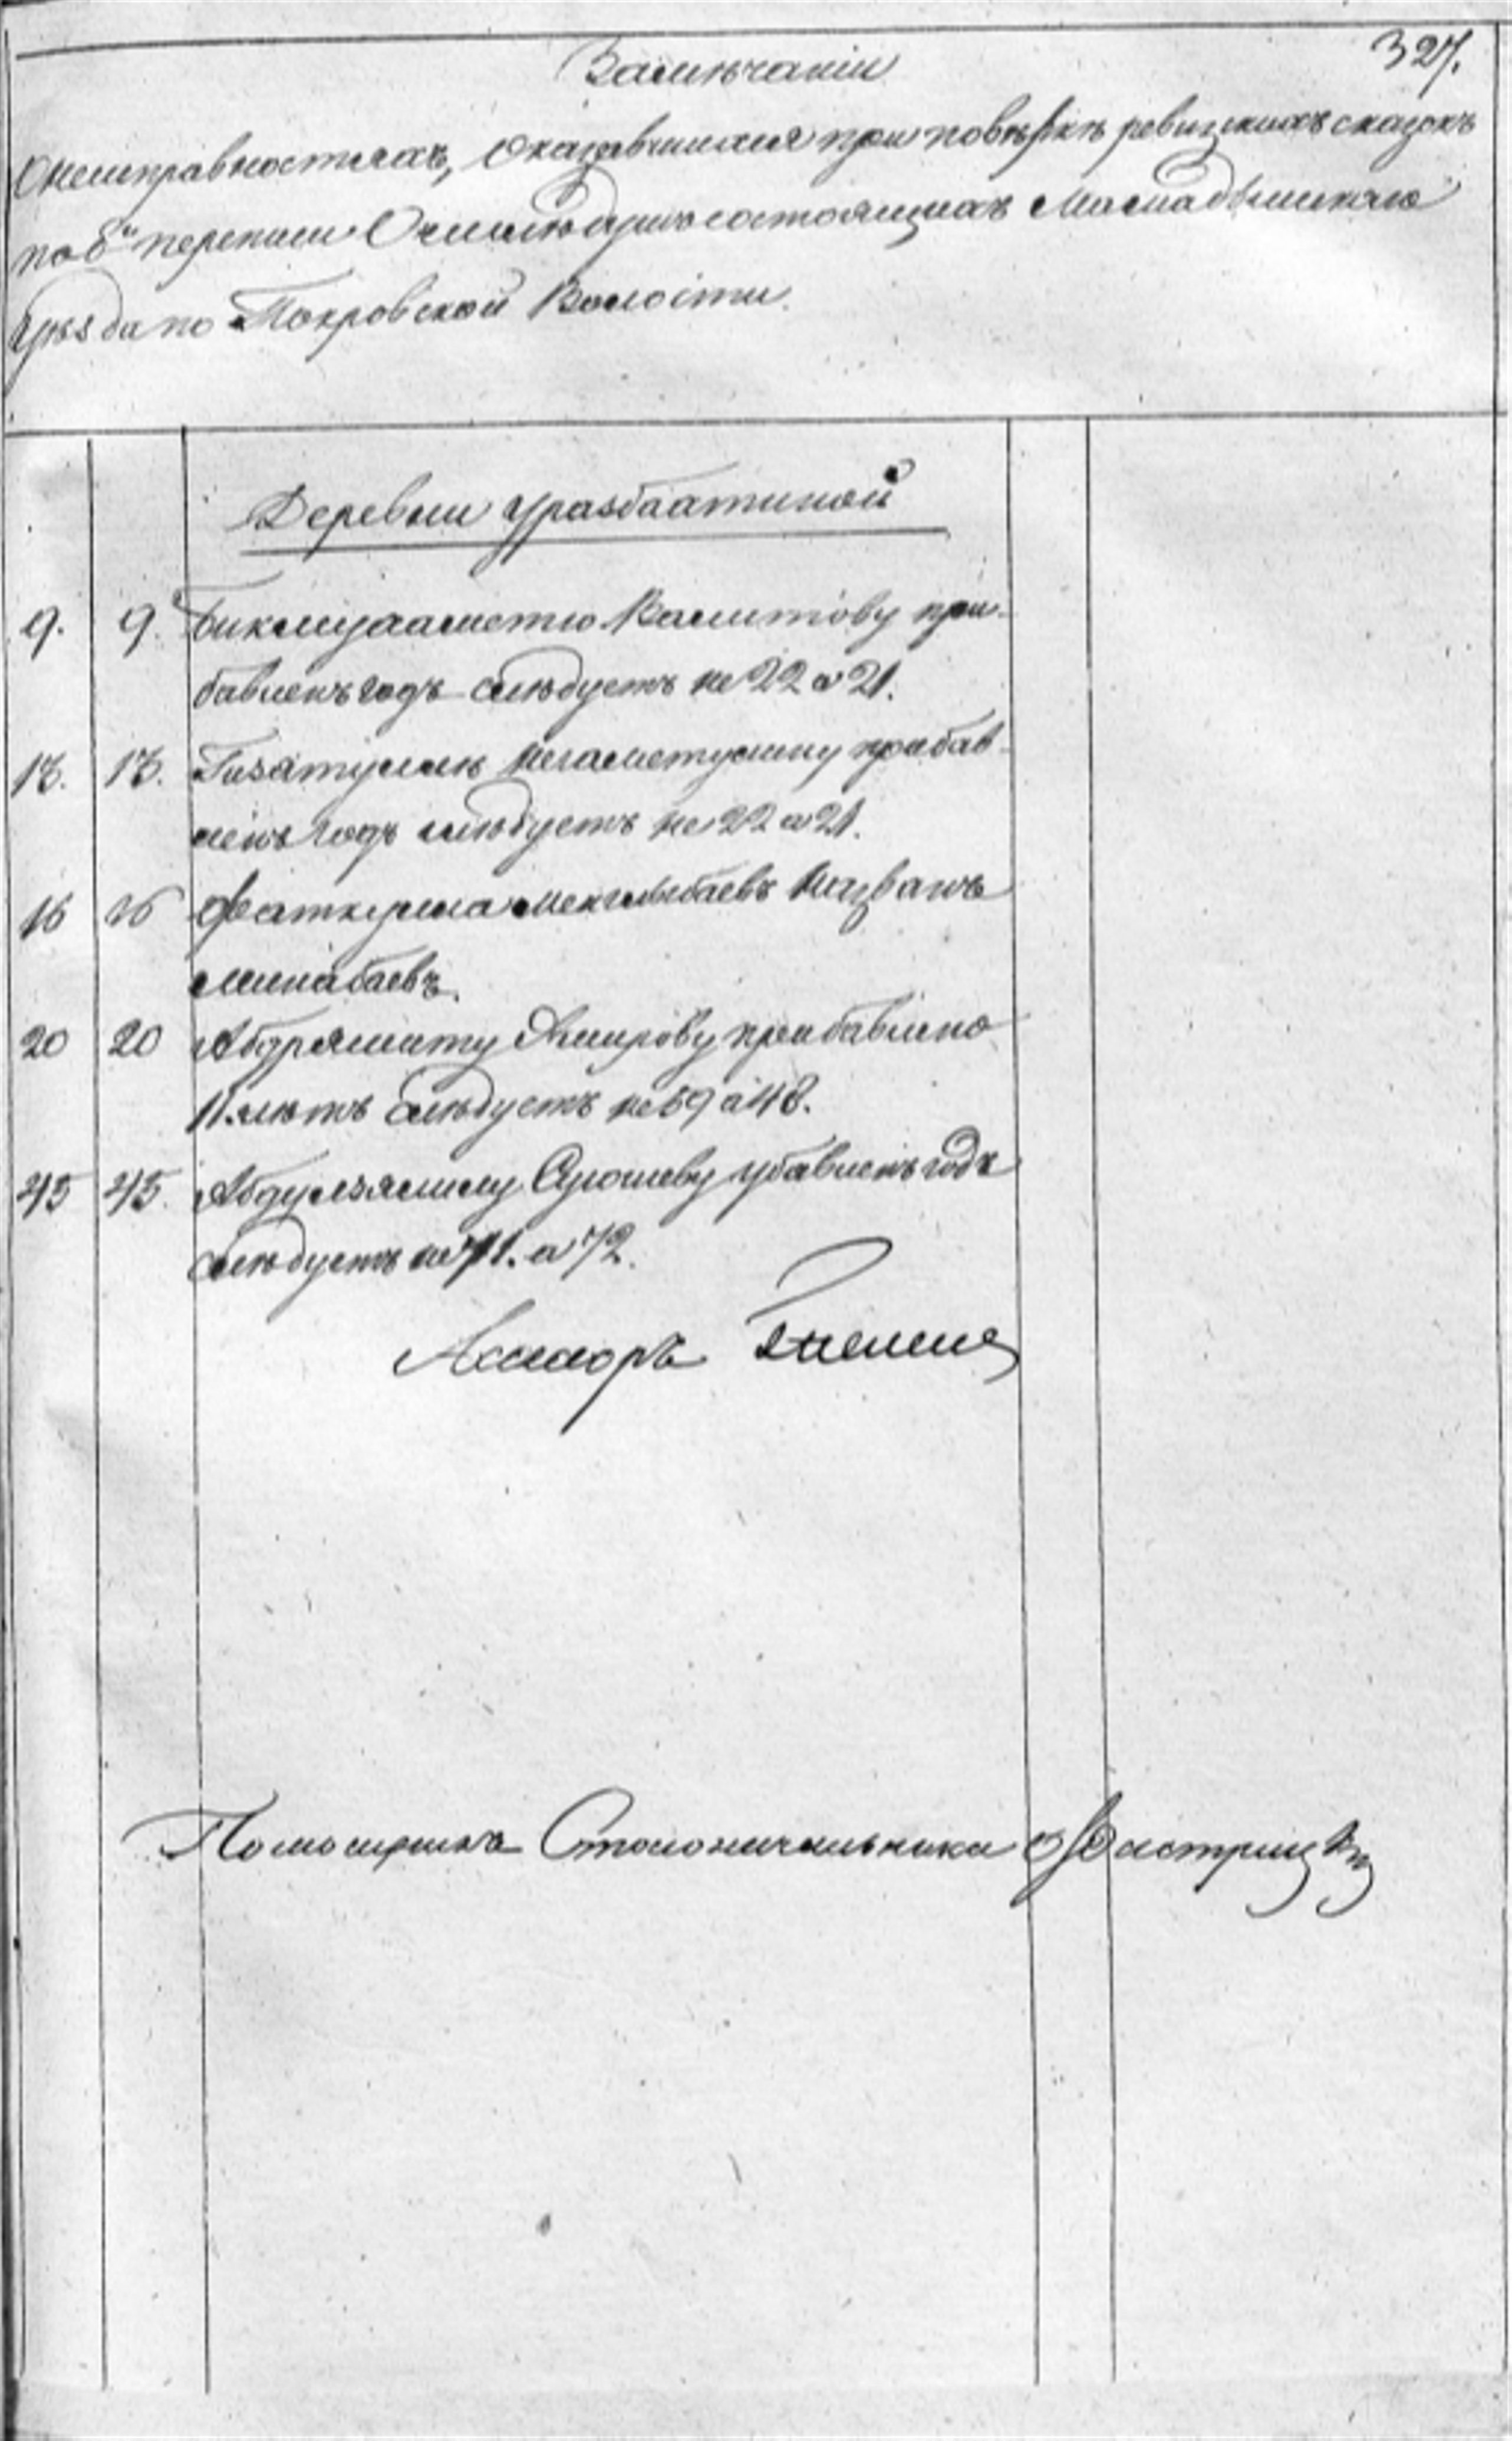 327.
Замѣчаніи
О неисправностяхъ, Оказавшихся при повѣркѣ ревизкихъ сказокъ
по 8й переписи О числѣ душъ состоящихъ Мамадышскаго
Уѣзда по Покровской Волости.
Деревни Уразбаатиной
9. 9. Валитову при-
бавленъ годъ слѣдуетъ не 22 а 21.
13. 13. Гизатуллѣ Негаметуллину прибав-
ленъ годъ слѣдуетъ не 22 а 21.
16 16 Фаткулла Менглибаевъ Названъ
Минабаевъ.
20 20 Абдряшиту Амирову прибавлено
11. лѣтъ Слѣдуетъ не 59 а 48.
45 45. Абдулзялилу Суюшеву убавленъ годъ
Слѣдуетъ не 71. а 72.
Асессоръ
Помощникъ Столоначальника